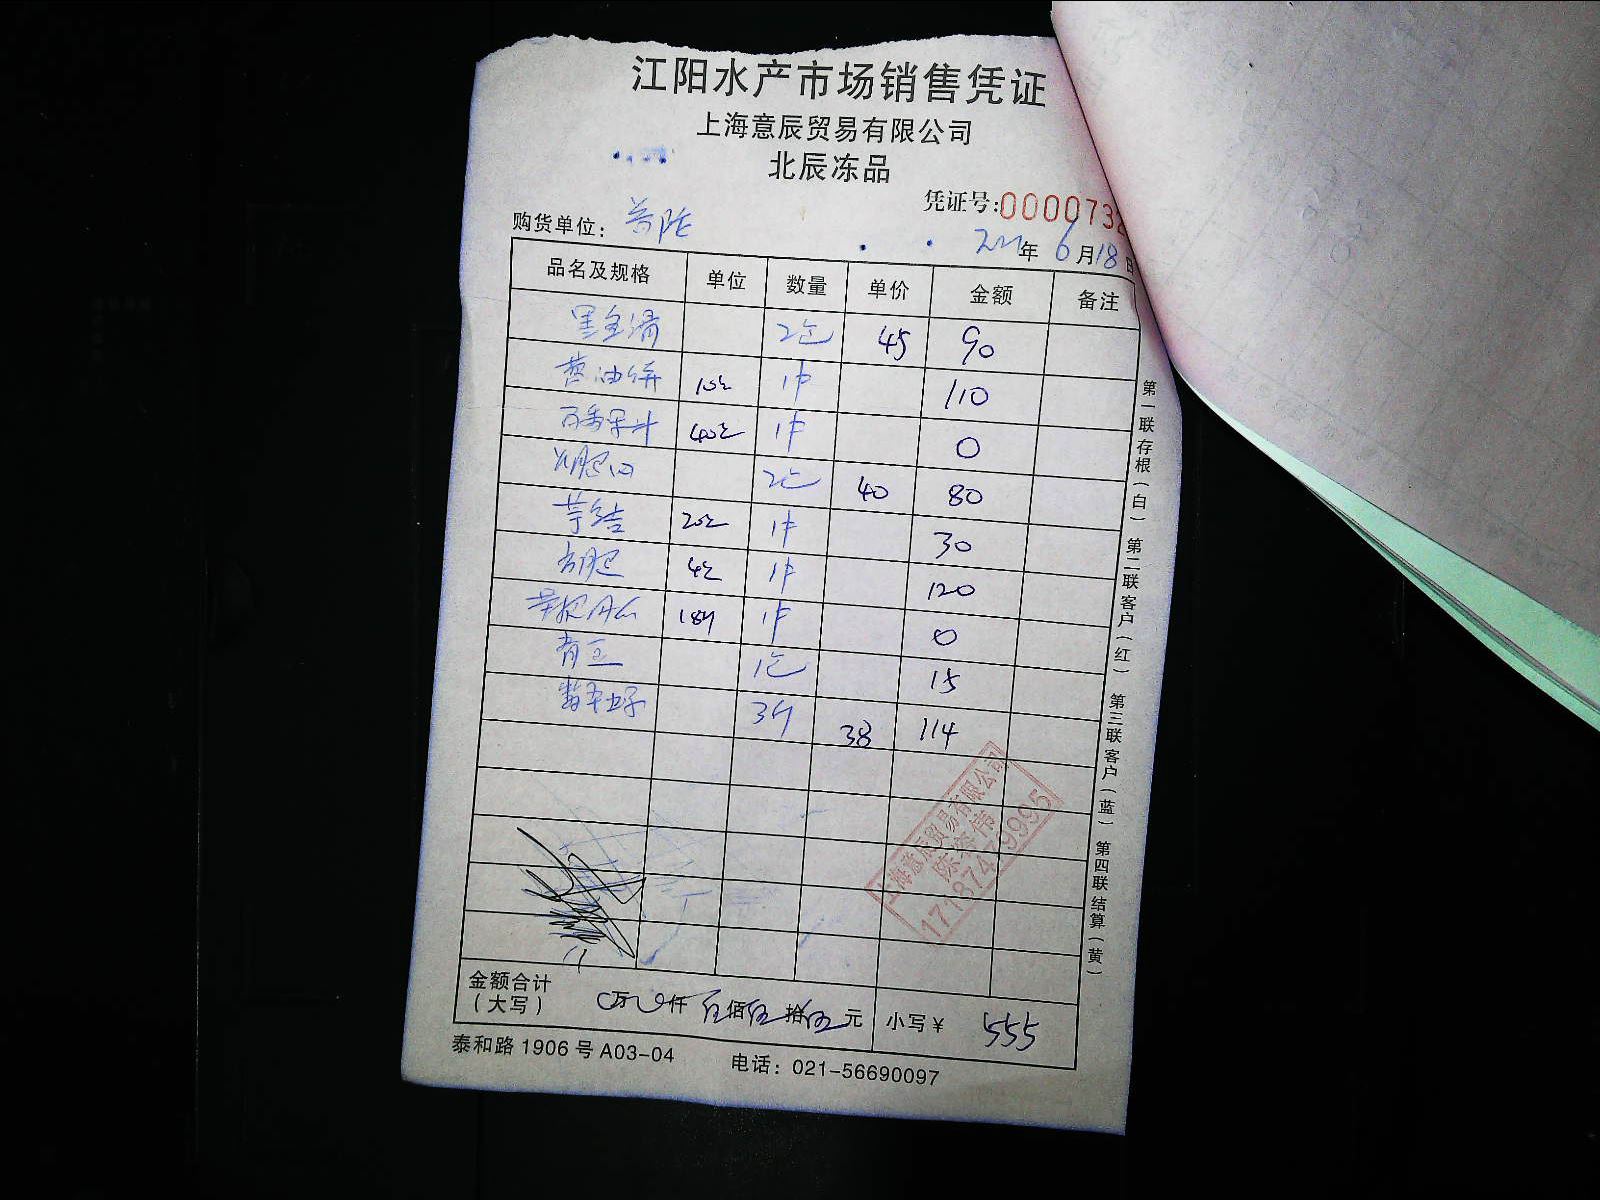 江阳水产市场销售凭证
上海意辰贸易有限公司
北辰冻品
凭证号:0000732
购货单位:
年 6月18日
品名及规格 单位 数量 单价 金额 备注
2包 45 90
葱油饼 10包 1件 110
百香果汁 40包 1件 0
2包 40 80
芋结 20包 1件 30
4包 1件 120
1件 0
青豆 1包 15
3个 38 114
金额合计
(大写) 0万0仟伍佰伍拾伍元 小写¥ 555
泰和路1906号A03-04 电话:021-56690097
第一联存根(白) 第二联客户(红) 第三联客户(蓝) 第四联结算(黄)
上海意辰贸易有限公司
17187479995